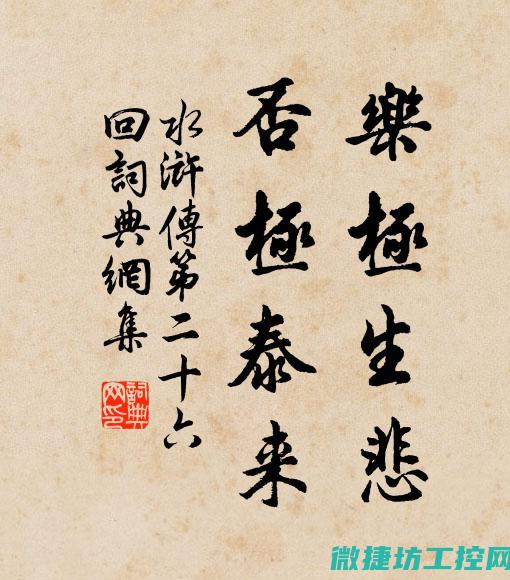 樂極生悲
否極泰来
水滸傳第二十六
回詞典網集
詞典网印
微捷坊工控网